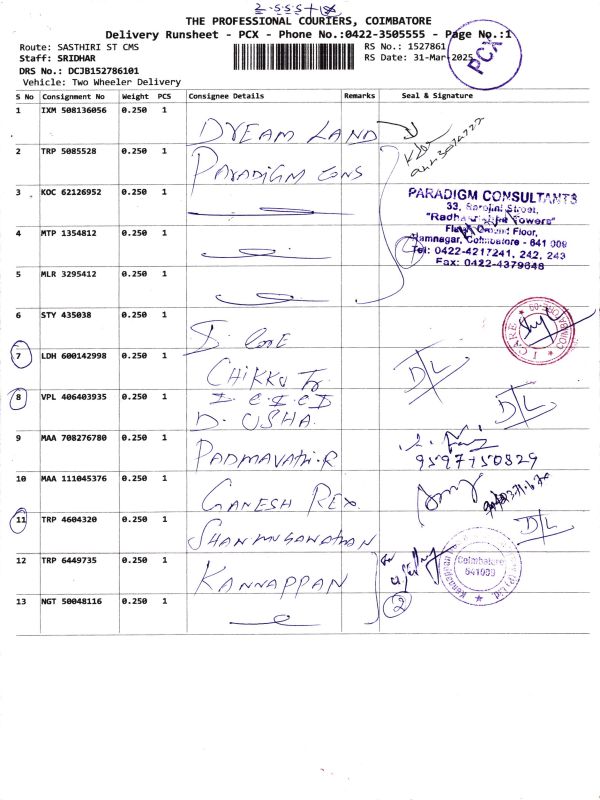 THE PROFESSIONAL COURIERS, COIMBATORE
Delivery Runsheet - PCX - Phone No.:0422-3505555 - Page No.:1
Route: SASTHIRI ST CMS RS No.: 1527861
Staff: SRIDHAR RS Date: 31-Mar-2025
PCX
DRS No.: DCJB152786101
Vehicle: Two Wheeler Delivery
S No Consignment No Weight PCS Consignee Details Remarks Seal & Signature
1 IXM 508136056 0.250 1 DREAM LAND
2 TRP 5085528 0.250 1 PARADIGM CONS
3 KOC 62126952 0.250 1
PARADIGM CONSULTANTS
33, Sarojini Street,
Towers"
Ground Floor,
Ramnagar, Coimbatore - 641 009
Tel: 0422-4217241, 242, 243
Fax: 0422-4379648
4 MTP 1354812 0.250 1
4
5 MLR 3295412 0.250 1
6 STY 435038 0.250 1
I CARE
7 LDH 600142998 0.250 1 CHIKKU D/L
8 VPL 406403935 0.250 1 D. USHA D/L
9 MAA 708276780 0.250 1 PADMAVATHI.R 9597150829
10 MAA 111045376 0.250 1 GANESH REX
11 TRP 4604320 0.250 1 SHANMUGANATHAN D/L
12 TRP 6449735 0.250 1 KANNAPPAN
Coimbatore
641009
2
13 NGT 50048116 0.250 1